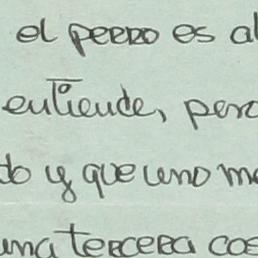 el perro es al
entiende, pero
do y que uno me
una tercera cos